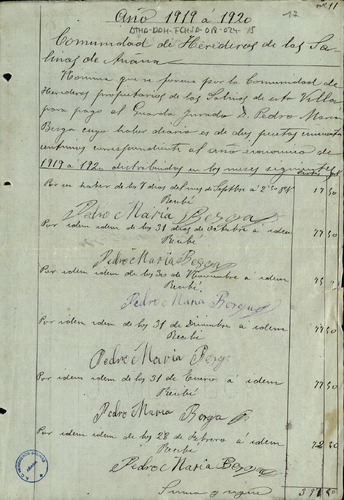 Nº 11
Año 1919 á 1920
17
ATHA-DAH-FCHSA-019-024-15
Comunidad de Herederos de las Sa-
linas de Añana
Nomina que se forma por la Comunidad de
Herederos propietarios de las Salinas de esta Villa
para pago al Guarda Jurado D. Pedro Maria
Berga cuyo haber diario es de dos pesetas cincuenta
centimos correspondiente al año economico de
1919 á 1920 distribuidos en los meses siguientes
Por su haber de los 7 dias del mes de Septbre á 2'50 17 50
Recibí
Pedro Maria Berga
Por idem idem de los 31 dias de Octubre á idem 77 50
Recibí
Pedro Maria Berga
Por idem idem de los 30 de Noviembre á idem 75
Recibí
Pedro Maria Berga
Por idem idem de los 31 de Diciembre á idem 77 50
Recibí
Pedro Maria Berga
Por idem idem de los 31 de Enero á idem 77 50
Recibí
Pedro Maria Berga
Por idem idem de los 28 de Febrero á idem 72 50
Recibí
Pedro Maria Berga
Suma y sigue 50